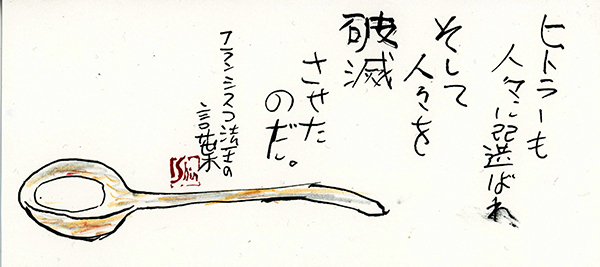 ヒトラーも
人々に選ばれ
そして
人々を
破滅
させた
のだ。
フランシスコ法王の
言葉
Shin